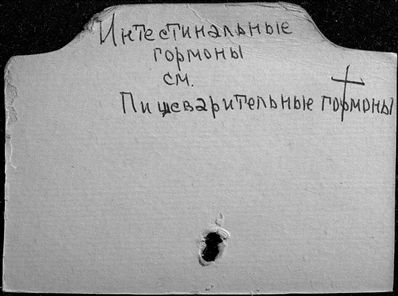 Интестинальные
гормоны
см.
Пищеварительные гормоны